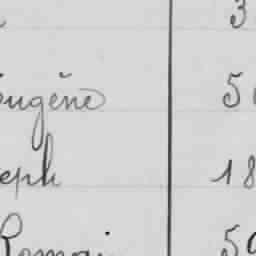 3
Eugène 5
eph 18
Romai 59